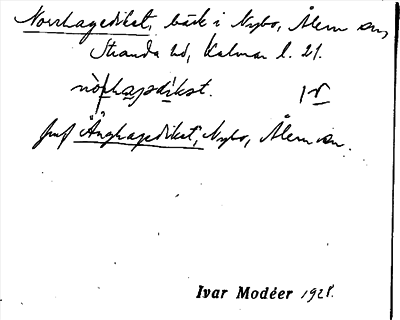 Norrhagediket, bäck i Nybo, Ålem sn,
Stranda hd, Kalmar l. 21.
jmf Änghagediket, Nybo, Ålem sn.
Ivar Modéer 1928.